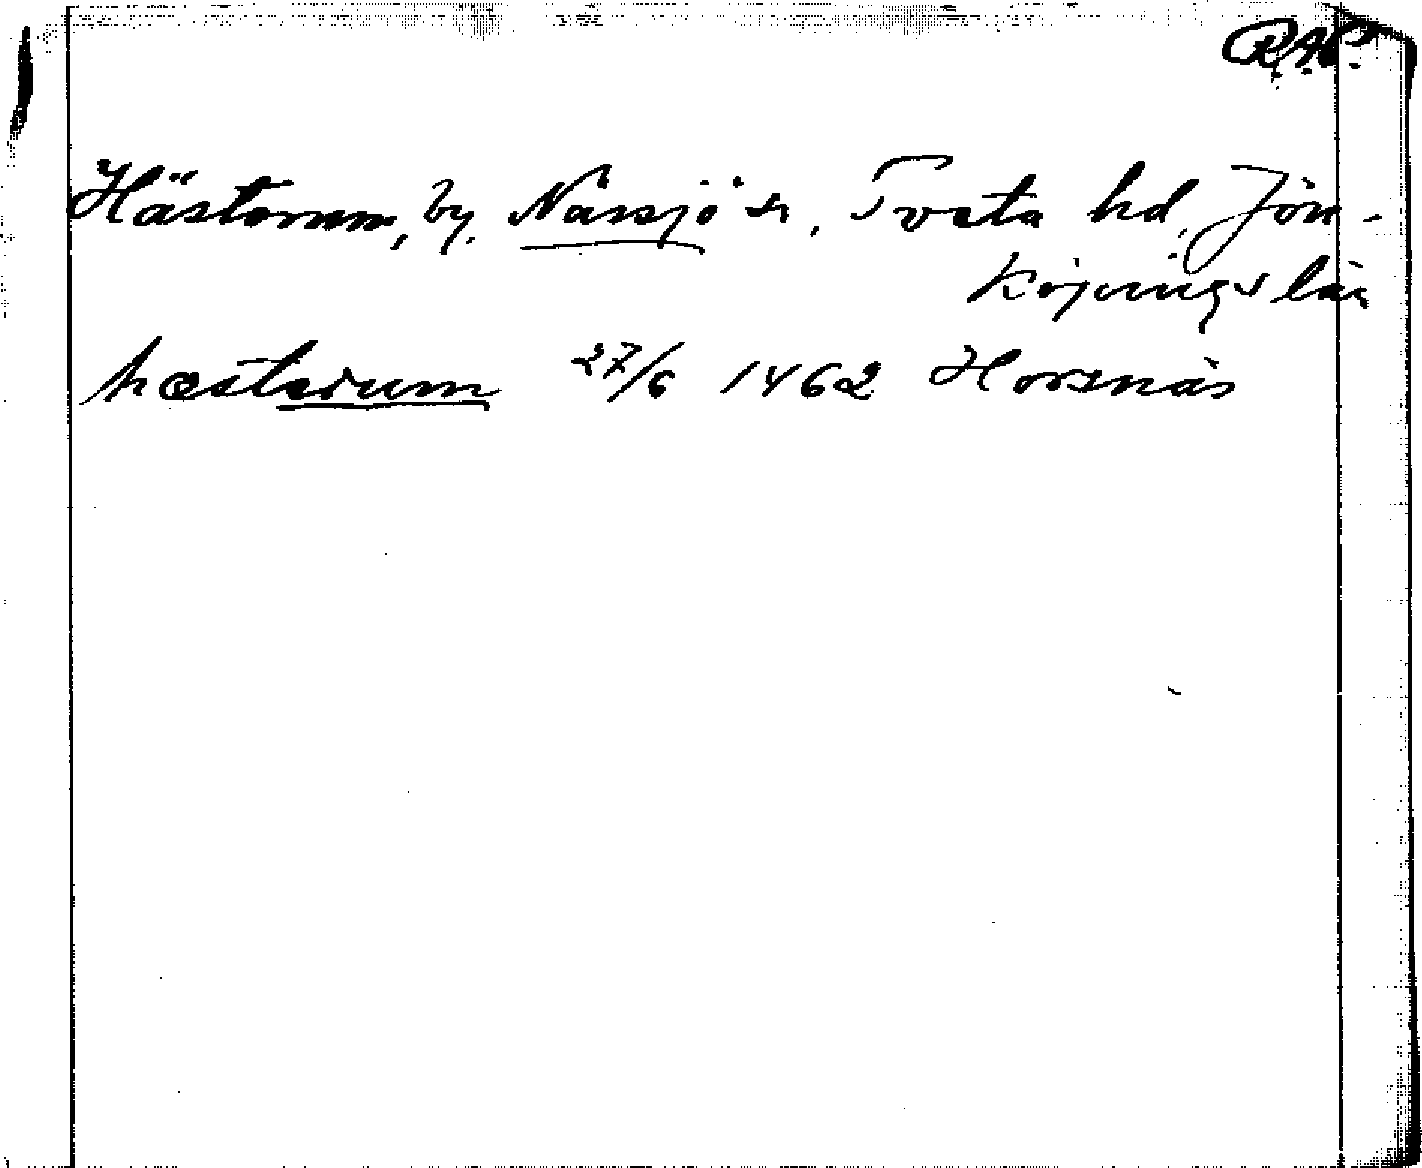 R.A.P.
Hästorum, by. Nässjö sn, Tveta hd, Jön-
köpings län
hæstarum 27/6 1462 Horsnäs